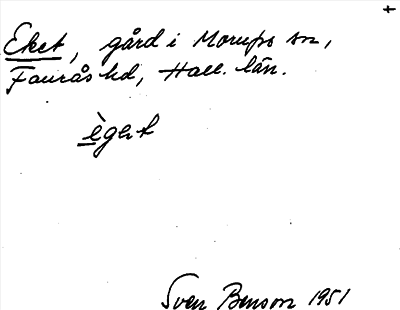 +
Eket, gård i Morups sn,
Faurås hd, Hall. län.
èget
Sven Benson 1951